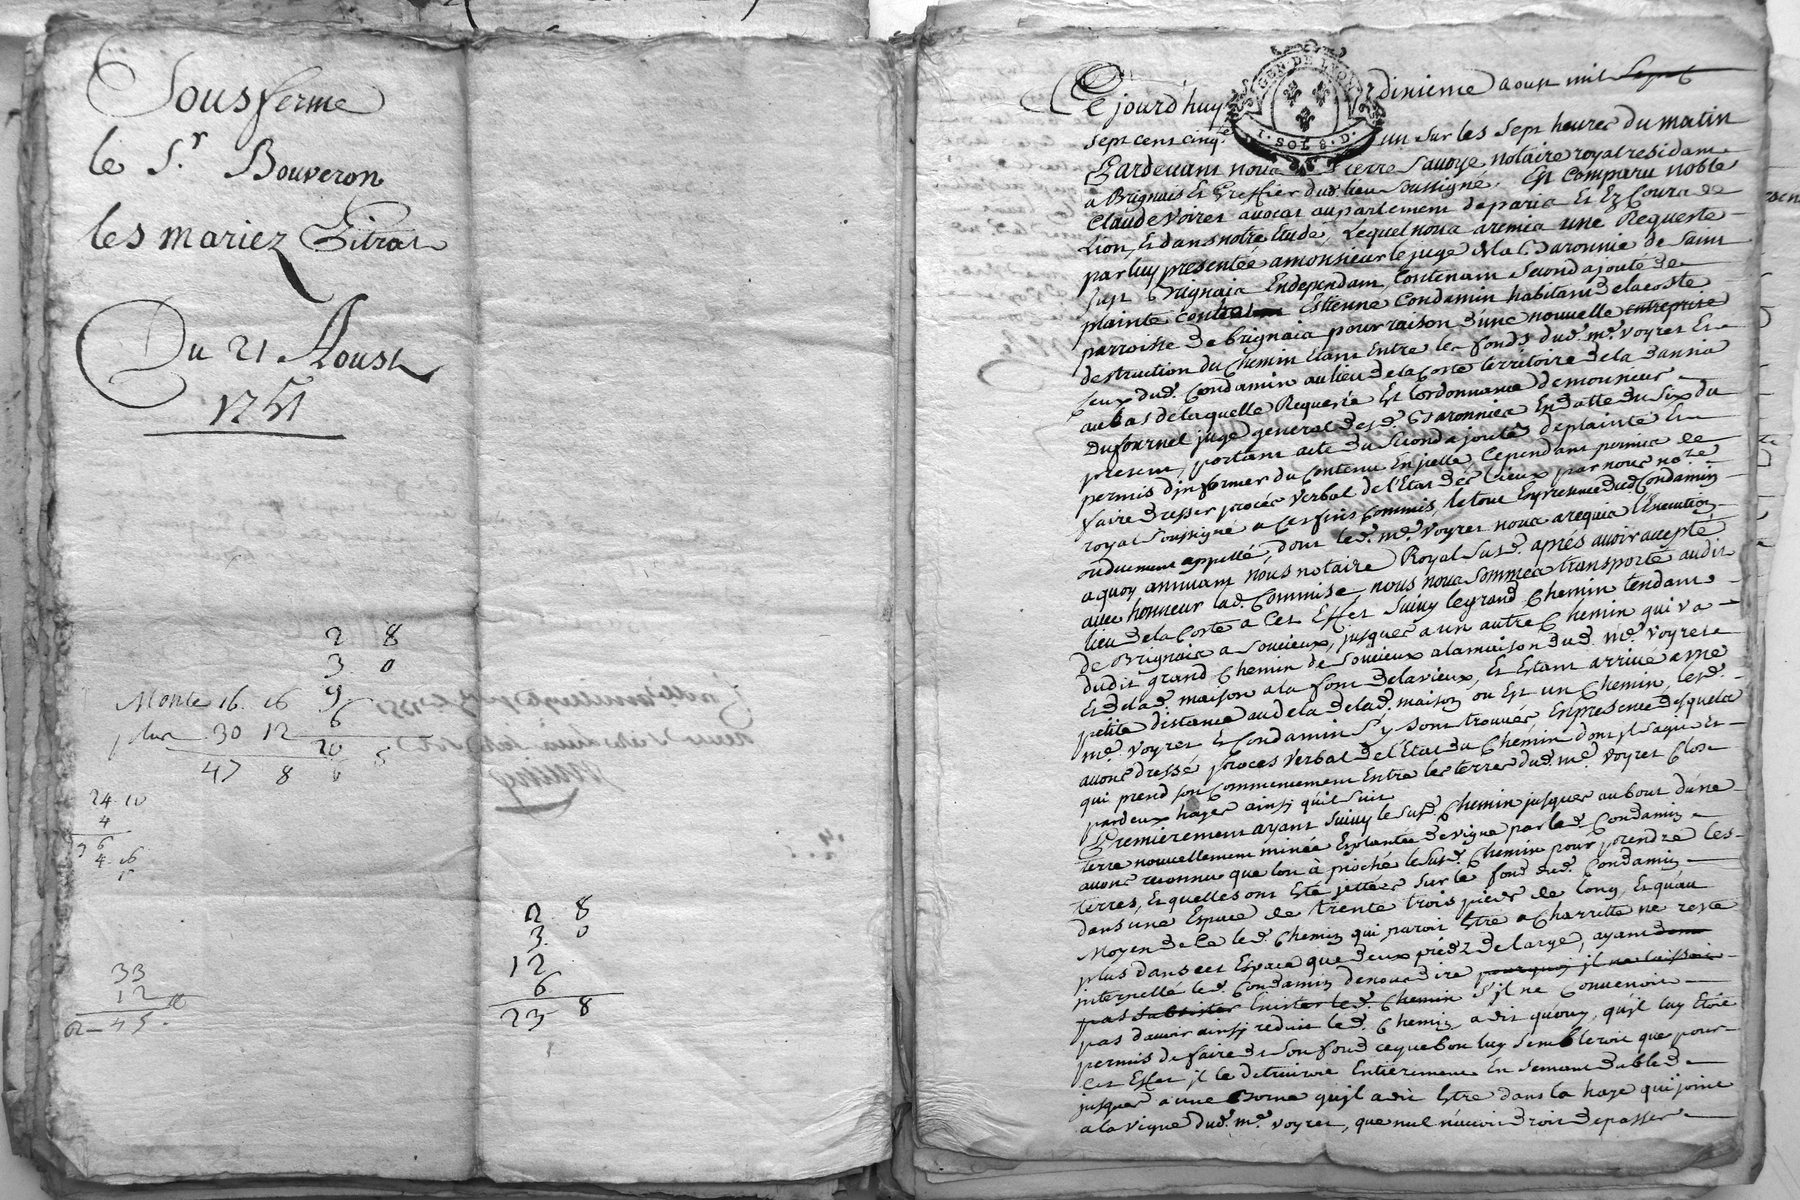 Sousferme
le S.r Bouveron
les mariez Pitrat
Du 21 Aoust
1751
2 8
3 0
Monte 16. 16 9
plus 30 12 6
20 8
47 8 6
24. 10
4
6
4. 16
33
12
45
2 8
3. 0
12
6
23 8
GEN. DE LYON
1. SOL 8. D.
Ce jourd'huy dixieme aoust mil Sept
Sept cent cinq.te un sur les Sept heures du matin
Pardevant nous Pierre Savoye notaire royal residant
a Brignais Et Greffier dud. lieu Soussigné. Est Comparu noble
Claude Voiret avocat au parlement de paris Et Ez Cours de
Lion, Et dans notre Etude, Lequel nous a remis une Requeste
par luy presentée a monsieur le juge de la Baronnie de Saint
Brignais Endependant, Contenant Second ajouté de
plainte contre Estienne Condamin habitant de la coste
parroisse de Brignais pour raison d'une nouvelle entreprise
destruction du Chemin Etant Entre les fonds dud. me. Voyret Et
Ceux dud. Condamin au lieu de la Coste territoire de la
au bas de laquelle Requeste Est l'ordonnance de monsieur
Dufournel juge general desd. Baronnies En datte du Six du
present, portant acte du Second ajouté de plainte Et
permis d'informer du Contenu En icelle Cependant permis de
faire dresser procés Verbal de l'Etat des Lieux par nous no.re
royal Soussigné a Ces fins Commis, le tout En presence dud Condamin
ou duement appellé, dont led. me. Voyret nous a requis l'Execution
a quoy nous notaire Royal Susd. aprés avoir accepté
avec honneur lad. Commise, nous nous Sommes transporté audit
lieu de la Coste a Cet Effet Suivy le grand Chemin tendant
de Brignais a Soucieux, jusques a un autre Chemin qui va
dudit grand Chemin de Soucieux a la maison dud. me. Voyret
Et de lad. maison a la font delavieux, Et Etant arrivé a une
petite distance au dela de lad. maison ou Est un Chemin, lesd.
me. Voyret Et Condamin S'y Sont trouvés, En presence desquels
avons dressé procés Verbal de l'Etat du Chemin dont il s'agit Et
qui prend Son Commencement Entre les terres dud. me. Voyret Clos
par deux hayes ainsy qu'il Suit
Premiérement ayant Suivy le Susd. Chemin jusques au bout d'une
terre nouvellement minée Explantée de vigne par led. Condamin
avons reconnu que l'on à pioché le Susd. Chemin pour prendre les
terres, Et quelles ont Eté jettées Sur le fond dud. Condamin
dans une Espace de trente trois pieds de long, Et qu'au
Moyen de Ce led. Chemin qui paroit Etre a Charrette ne reste
plus dans cet Espace que deux piedz de large, ayant
interpellé led. Condamin de nous dire pourquoy il ne laissoit
pas subsister led. Chemin S'il ne Convenoit
pas d'avoir ainsy reduit led. Chemin a dit qu'ouy, qu'il luy Etoit
permis de faire de Son fond ce que bon luy Sembleroit que pour
Cet Effet il le detruiroit Entiérement En Semant du bled
jusques a une Borne qu'il a dit Etre dans la haye qui joint
a la vigne dud. me. Voyret, que nul n'avoit droit de passer